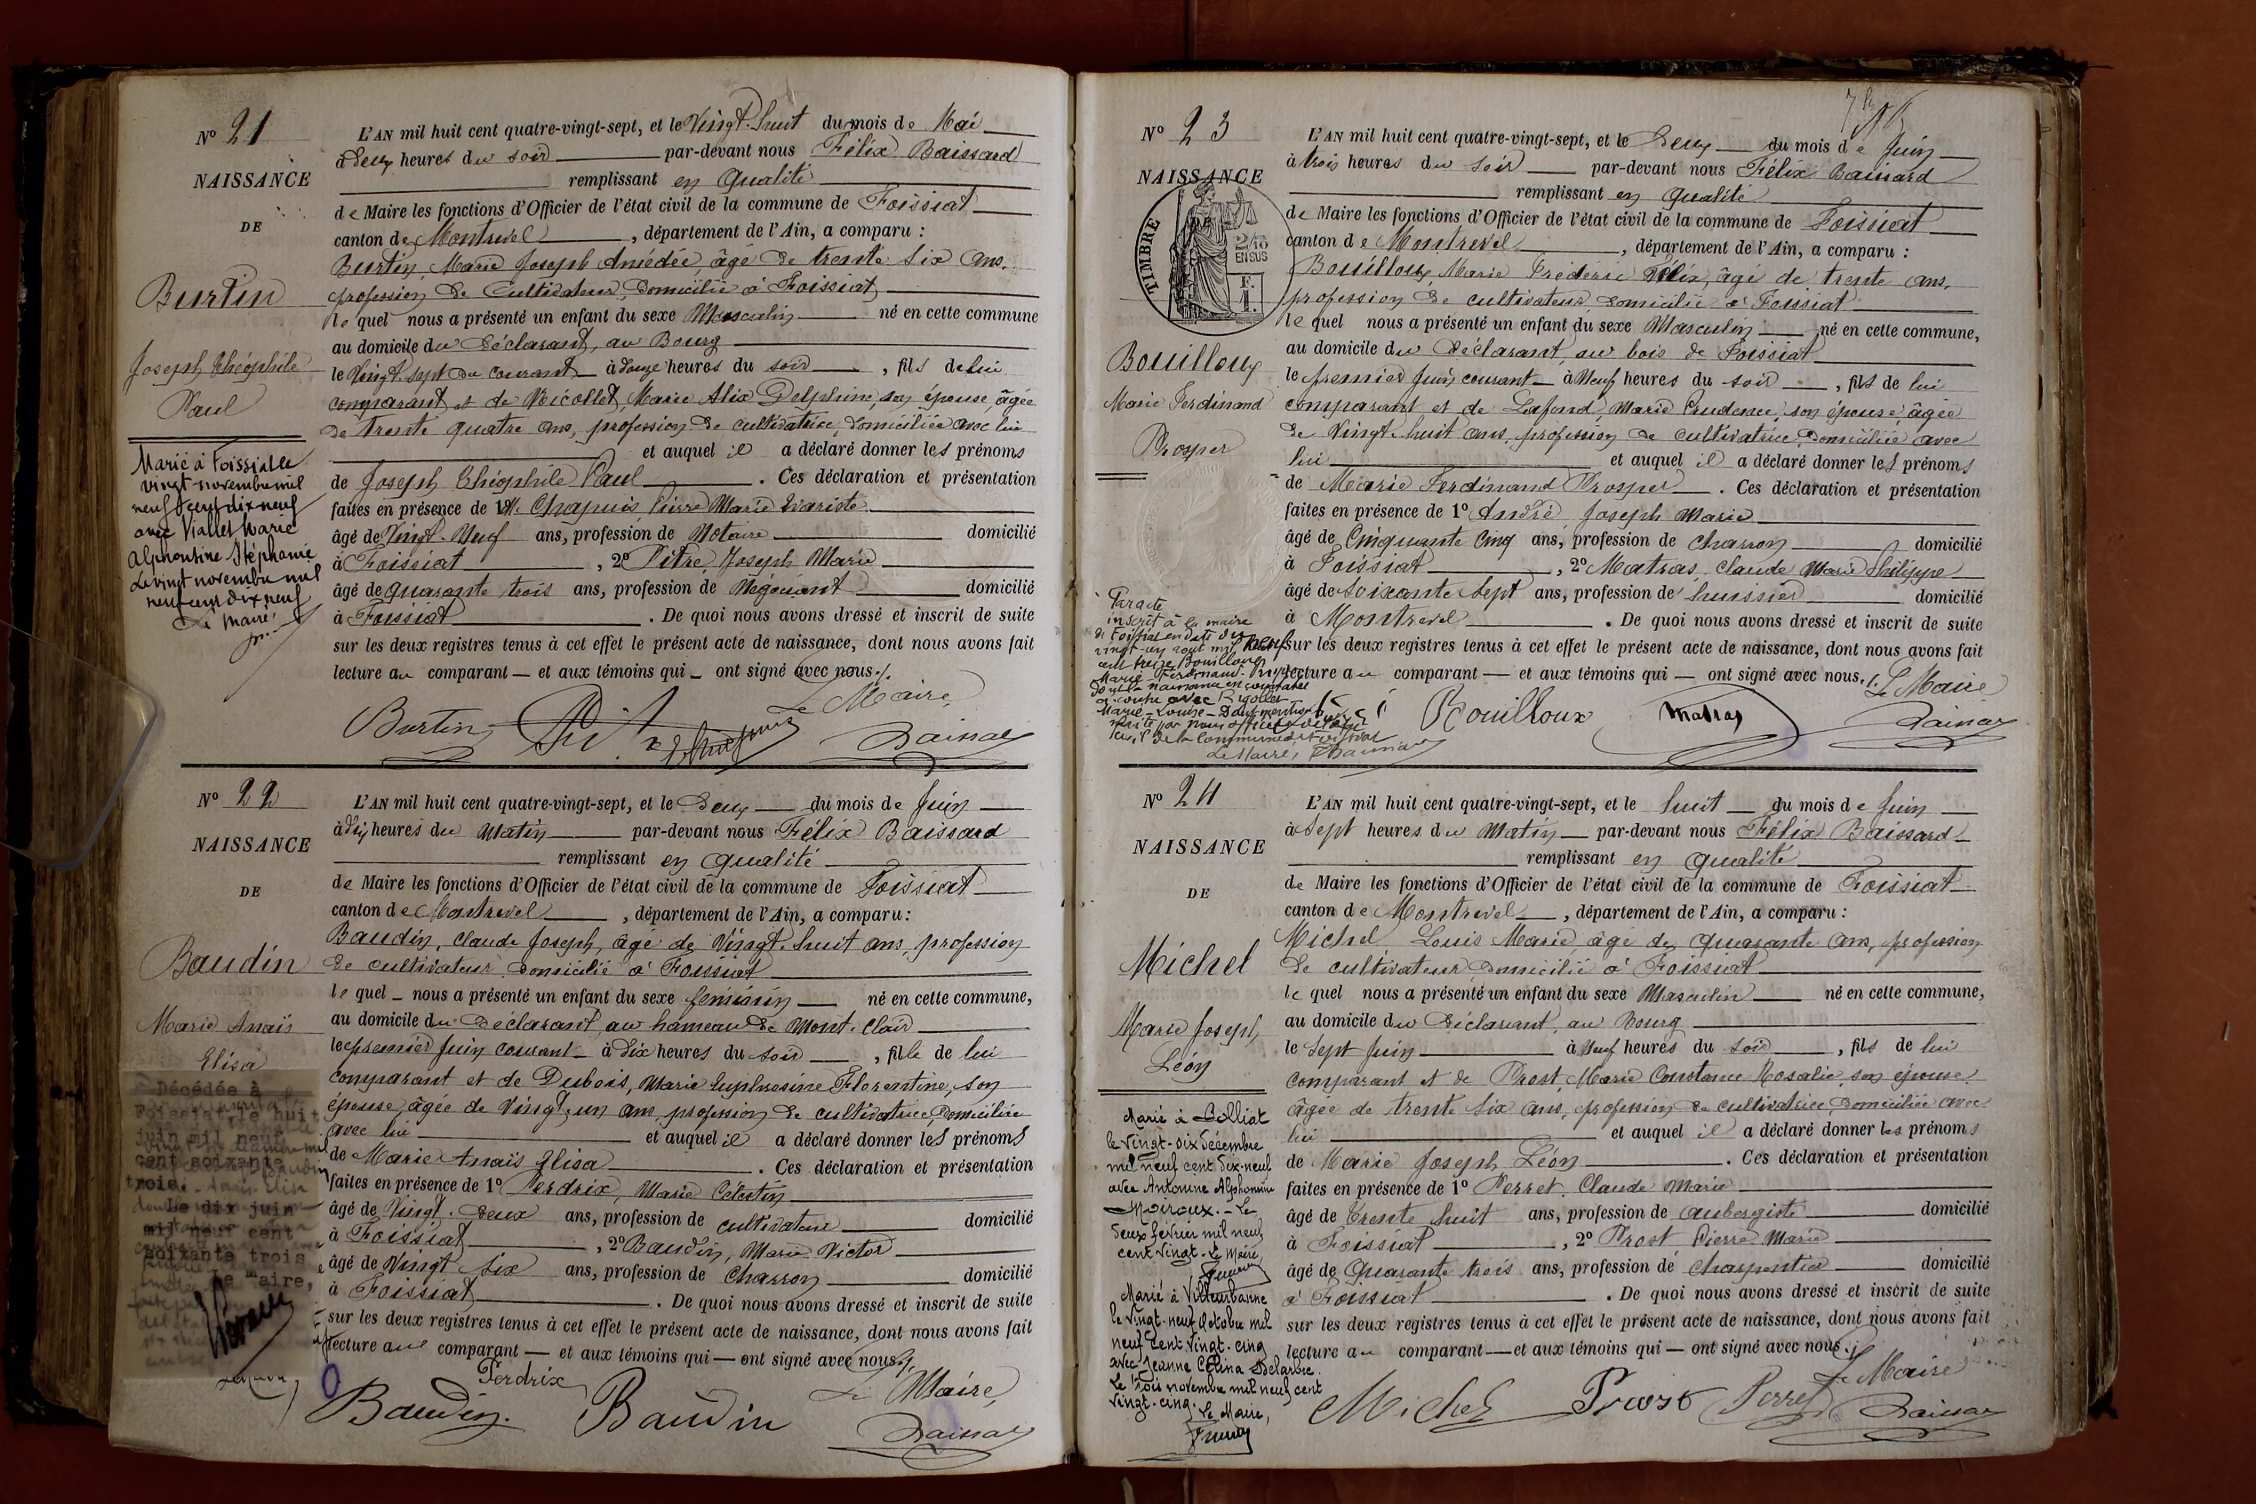 N° 21
NAISSANCE
DE
Burtin
Joseph Théophile
Paul
Marié à Foissiat le
vingt novembre mil
neuf cent dix neuf
avec Viallet Marie
Alphonsine Stéphanie
Le vingt novembre mil
neuf cent dix neuf
Le Maire,
L'AN mil huit cent quatre-vingt-sept, et le Vingt-huit du mois de Mai
à Deux heures du soir par-devant nous Félix Baissard
remplissant en qualité
de Maire les fonctions d'Officier de l'état civil de la commune de Foissiat
canton de Montrevel, département de l'Ain, a comparu :
Burtin, Marie Joseph Amédée, âgé de trente six ans.
profession de Cultivateur, domicilié à Foissiat
le quel nous a présenté un enfant du sexe Masculin né en cette commune
au domicile du déclarant, au Bourg
le Vingt-sept du courant à douze heures du soir, fils de lui
comparant et de Nicollet, Marie Alix Delphine, son épouse, âgée
de trente quatre ans, profession de cultivatrice, domiciliée avec lui
et auquel il a déclaré donner les prénoms
de Joseph Théophile Paul. Ces déclaration et présentation
faites en présence de 1° M. Chapuis Pierre Marie Evariste
âgé de Vingt-Neuf ans, profession de Notaire domicilié
à Foissiat, 2° Pitre, Joseph Marie
âgé de quarante trois ans, profession de Négociant domicilié
à Foissiat. De quoi nous avons dressé et inscrit de suite
sur les deux registres tenus à cet effet le présent acte de naissance, dont nous avons fait
lecture au comparant — et aux témoins qui — ont signé avec nous.
Le Maire,
Burtin
Baissard
N° 22
NAISSANCE
DE
Baudin
Marie Anaïs
Elisa
Décédée à
Foissiat le huit
juin mil neuf
cent soixante
trois.
Le dix juin
mil neuf cent
soixante trois
Le Maire,
L'AN mil huit cent quatre-vingt-sept, et le Deux du mois de Juin
à dix heures du Matin par-devant nous Félix Baissard
remplissant en qualité
de Maire les fonctions d'Officier de l'état civil de la commune de Foissiat
canton de Montrevel, département de l'Ain, a comparu :
Baudin, Claude Joseph, âgé de Vingt-huit ans, profession
de cultivateur, domicilié à Foissiat
le quel — nous a présenté un enfant du sexe féminin né en cette commune,
au domicile du déclarant, au hameau de Mont-Clair
le premier Juin courant à dix heures du soir, fille de lui
comparant et de Dubois, Marie Euphrosine Florentine, son
épouse, âgée de Vingt-un ans, profession de cultivatrice, domiciliée
avec lui et auquel il a déclaré donner les prénoms
de Marie Anaïs Elisa. Ces déclaration et présentation
faites en présence de 1° Perdrix, Marie Célestin
âgé de Vingt-deux ans, profession de cultivateur domicilié
à Foissiat, 2° Baudin, Marie Victor
âgé de Vingt Six ans, profession de Charron domicilié
à Foissiat. De quoi nous avons dressé et inscrit de suite
sur les deux registres tenus à cet effet le présent acte de naissance, dont nous avons fait
lecture au comparant — et aux témoins qui — ont signé avec nous.
Perdrix
Le Maire,
Baudin Baudin
Baissard
N° 23
NAISSANCE
DE
TIMBRE
2/10
EN SUS
F.
1.
Bouilloux
Marie Ferdinand
Prosper
Par acte
inscrit à la mairie
de Foissiat en date du
vingt-un août mil neuf
cent treize Bouilloux
Marie-Ferdinand-Prosper
dont la naissance est constatée
ci-contre avec Rigollet
Marie-Louise - Dont mention
faite par nous officier de l'état
civil de la commune de Foissiat
Le Maire,
L'AN mil huit cent quatre-vingt-sept, et le Deux du mois de Juin
à trois heures du soir par-devant nous Félix Baissard
remplissant en qualité
de Maire les fonctions d'Officier de l'état civil de la commune de Foissiat
canton de Montrevel, département de l'Ain, a comparu :
Bouilloux, Marie Fréderic Félix, âgé de trente ans.
profession de cultivateur, domicilié à Foissiat
le quel nous a présenté un enfant du sexe Masculin né en cette commune,
au domicile du déclarant, au bois de Foissiat
le premier Juin courant à Neuf heures du soir, fils de lui
comparant et de Lafond, Marie Prudence, son épouse, âgée
de Vingt-huit ans, profession de cultivatrice, domiciliée avec
lui et auquel il a déclaré donner les prénoms
de Marie Ferdinand Prosper. Ces déclaration et présentation
faites en présence de 1° André, Joseph Marie
âgé de Cinquante Cinq ans, profession de charron domicilié
à Foissiat, 2° Matras, Claude Marie Philippe
âgé de Soixante Sept ans, profession de huissier domicilié
à Montrevel. De quoi nous avons dressé et inscrit de suite
sur les deux registres tenus à cet effet le présent acte de naissance, dont nous avons fait
lecture au comparant — et aux témoins qui — ont signé avec nous.
Le Maire
Bouilloux Matras
Baissard
N° 24
NAISSANCE
DE
Michel
Marie Joseph
Léon
Marié à Polliat
le vingt-dix décembre
mil neuf cent dix-neuf
avec Antonine Alphonsine
Moiroux. - Le
deux février mil neuf
cent vingt. Le Maire,
Marié à Villeurbanne
le vingt-neuf Octobre mil
neuf cent vingt-cinq
avec Jeanne Colina Delarbre.
Le trois novembre mil neuf cent
vingt-cinq.
Le Maire,
L'AN mil huit cent quatre-vingt-sept, et le huit du mois de Juin
à Sept heures du Matin par-devant nous Félix Baissard
remplissant en qualité
de Maire les fonctions d'Officier de l'état civil de la commune de Foissiat
canton de Montrevel, département de l'Ain, a comparu :
Michel, Louis Marie, âgé de quarante ans, profession
de cultivateur, domicilié à Foissiat
le quel nous a présenté un enfant du sexe Masculin né en cette commune,
au domicile du déclarant, au Bourg
le Sept Juin à Neuf heures du soir, fils de lui
comparant et de Prost, Marie Constance Rosalie, son épouse,
âgée de trente six ans, profession de cultivatrice, domiciliée avec
lui et auquel il a déclaré donner les prénoms
de Marie Joseph Léon. Ces déclaration et présentation
faites en présence de 1° Perret, Claude Marie
âgé de trente huit ans, profession de aubergiste domicilié
à Foissiat, 2° Prost Pierre Marie
âgé de quarante trois ans, profession de charpentier domicilié
à Foissiat. De quoi nous avons dressé et inscrit de suite
sur les deux registres tenus à cet effet le présent acte de naissance, dont nous avons fait
lecture au comparant — et aux témoins qui — ont signé avec nous.
Le Maire
Michel Prost Perret
Baissard